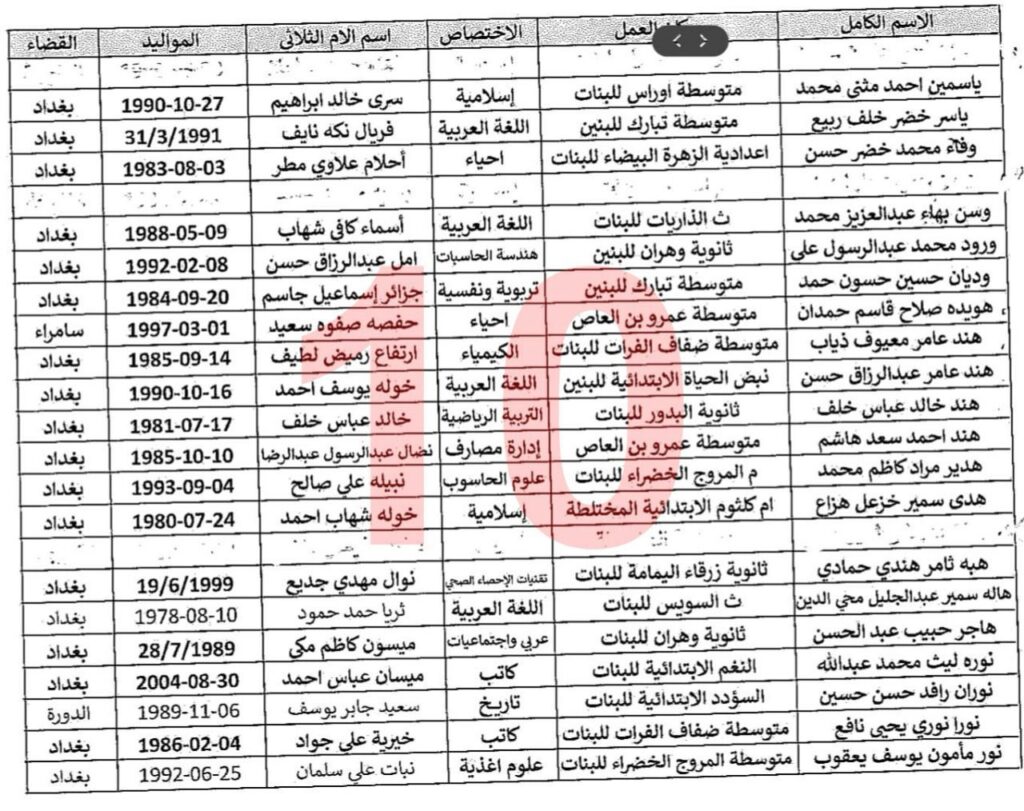 الاسم الكامل العمل الاختصاص اسم الام الثلاثي المواليد القضاء
ياسمين احمد مثنى محمد متوسطة اوراس للبنات إسلامية سرى خالد ابراهيم 1990-10-27 بغداد
ياسر خضر خلف ربيع متوسطة تبارك للبنين اللغة العربية فريال نكه نايف 31/3/1991 بغداد
وفاء محمد خضر حسن اعدادية الزهرة البيضاء للبنات احياء أحلام علاوي مطر 1983-08-03 بغداد
وسن بهاء عبدالعزيز محمد ث الذاريات للبنات اللغة العربية أسماء كافي شهاب 1988-05-09 بغداد
ورود محمد عبدالرسول علي ثانوية وهران للبنين هندسة الحاسبات امل عبدالرزاق حسن 1992-02-08 بغداد
وديان حسين حسون حمد متوسطة تبارك للبنين تربوية ونفسية جزائر إسماعيل جاسم 1984-09-20 بغداد
هويده صلاح قاسم حمدان متوسطة عمرو بن العاص احياء حفصه صفوه سعيد 1997-03-01 سامراء
هند عامر معيوف ذياب متوسطة ضفاف الفرات للبنات الكيمياء ارتفاع رميض لطيف 1985-09-14 بغداد
هند عامر عبدالرزاق حسن نبض الحياة الابتدائية للبنين اللغة العربية خوله يوسف احمد 1990-10-16 بغداد
هند خالد عباس خلف ثانوية البدور للبنات التربية الرياضية خالد عباس خلف 1981-07-17 بغداد
هند احمد سعد هاشم متوسطة عمرو بن العاص إدارة مصارف نضال عبدالرسول عبدالرضا 1985-10-10 بغداد
هدير مراد كاظم محمد م المروج الخضراء للبنات علوم الحاسوب نبيله علي صالح 1993-09-04 بغداد
هدى سمير خزعل هزاع ام كلثوم الابتدائية المختلطة إسلامية خوله شهاب احمد 1980-07-24 بغداد
هبه ثامر هندي حمادي ثانوية زرقاء اليمامة للبنات تقنيات الإحصاء الصحي نوال مهدي جديع 19/6/1999 بغداد
هاله سمير عبدالجليل محي الدين ث السويس للبنات اللغة العربية ثريا حمد حمود 1978-08-10 بغداد
هاجر حبيب عبد الحسن ثانوية وهران للبنات عربي واجتماعيات ميسون كاظم مكي 28/7/1989 بغداد
نوره ليث محمد عبدالله النغم الابتدائية للبنات كاتب ميسان عباس احمد 2004-08-30 بغداد
نوران رافد حسن حسين السؤدد الابتدائية للبنات تاريخ سعيد جابر يوسف 1989-11-06 الدورة
نورا نوري يحيى نافع متوسطة ضفاف الفرات للبنات كاتب خيرية علي جواد 1986-02-04 بغداد
نور مأمون يوسف يعقوب متوسطة المروج الخضراء للبنات علوم اغذية نبات علي سلمان 1992-06-25 بغداد
10